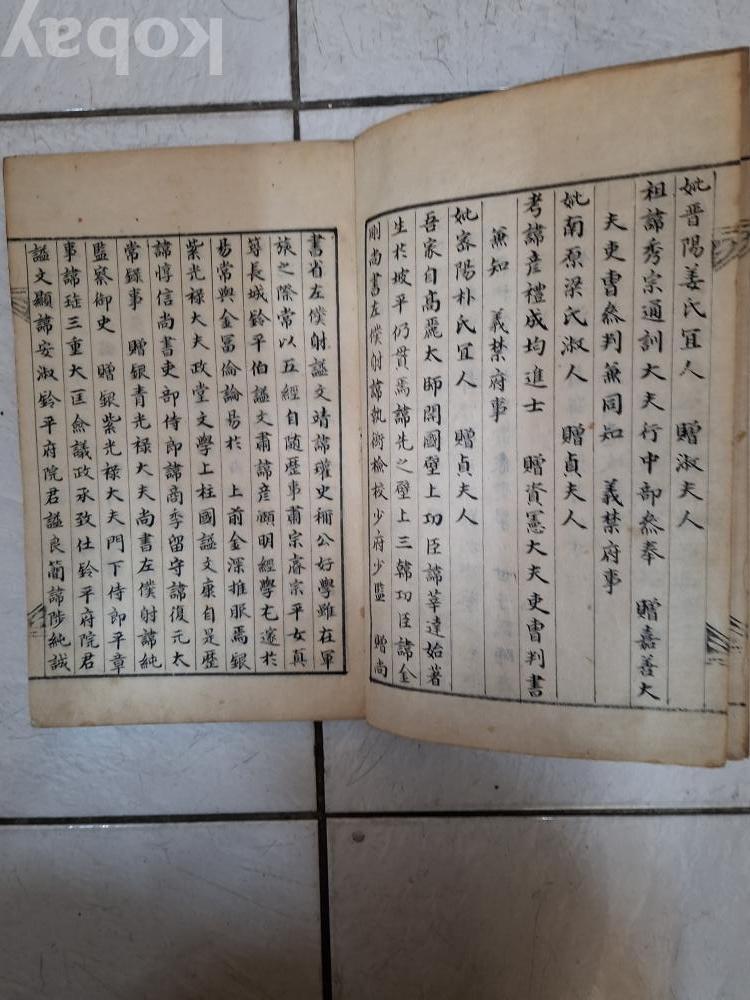 kobay
妣晋陽姜氏宜人 贈淑夫人
祖諱秀宗通訓大夫行中部叅奉 贈嘉善大
夫吏曹叅判兼同知 義禁府事
妣南原梁氏淑人 贈貞夫人
考諱彦禮成均進士 贈資憲大夫吏曹判書
兼知 義禁府事
妣密陽朴氏宜人 贈貞夫人
吾家自高麗太師開國壁上功臣諱莘達始著
生於坡平仍貫焉諱先之壁上三韓功臣諱金
剛尚書左僕射諱執衡檢校少府少監 贈尚
書省左僕射諡文靖諱瓘史稱公好學雖在軍
旅之際常以五經自随歴事肅宗睿宗平女真
築長城鈴平伯諡文肅諱彦頤明經學尤邃於
易常與金冨倫論易於 上前金深推服焉銀
紫光禄大夫政堂文學上柱國諡文康自是歴
諱惇信尚書吏部侍郎諱商季留守諱復元太
常錄事 贈銀青光禄大夫尚書左僕射諱純
監察御史 贈銀紫光禄大夫門下侍郎平章
事諱珤三重大匡僉議政丞致仕鈴平府院君
諡文顯諱安淑鈴平府院君諡良簡諱陟純誠